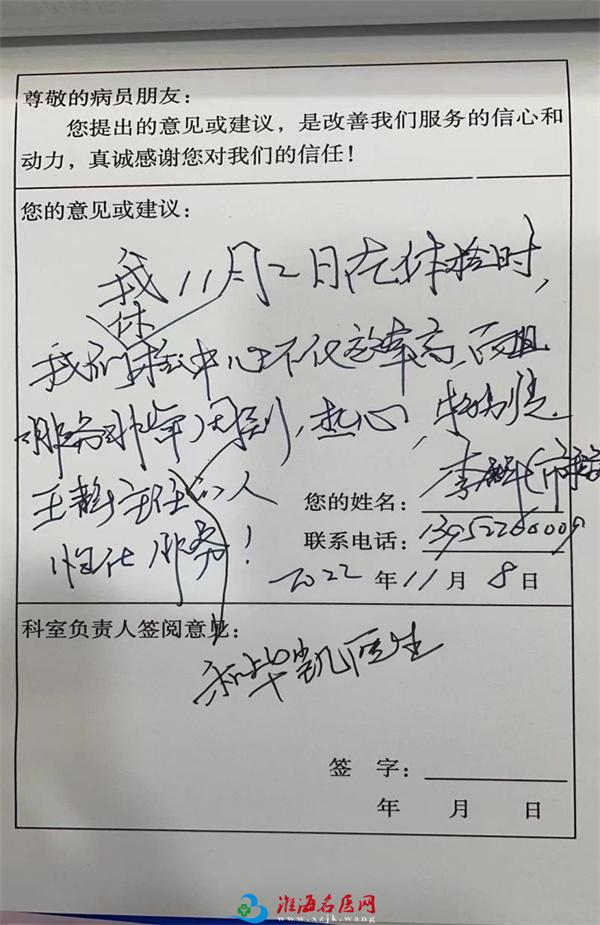 尊敬的病员朋友：
您提出的意见或建议，是改善我们服务的信心和
动力，真诚感谢您对我们的信任！
您的意见或建议：
我11月2日在体检时，
体
我们检中心不仅效率高，而且
服务非常周到，热心，特别是
王静主任的人
性化服务！
您的姓名：李
联系电话：
2022年11月8日
科室负责人签阅意见：
和华凯医生
签 字：
年 月 日
淮海名医网
www.xzjk.wang